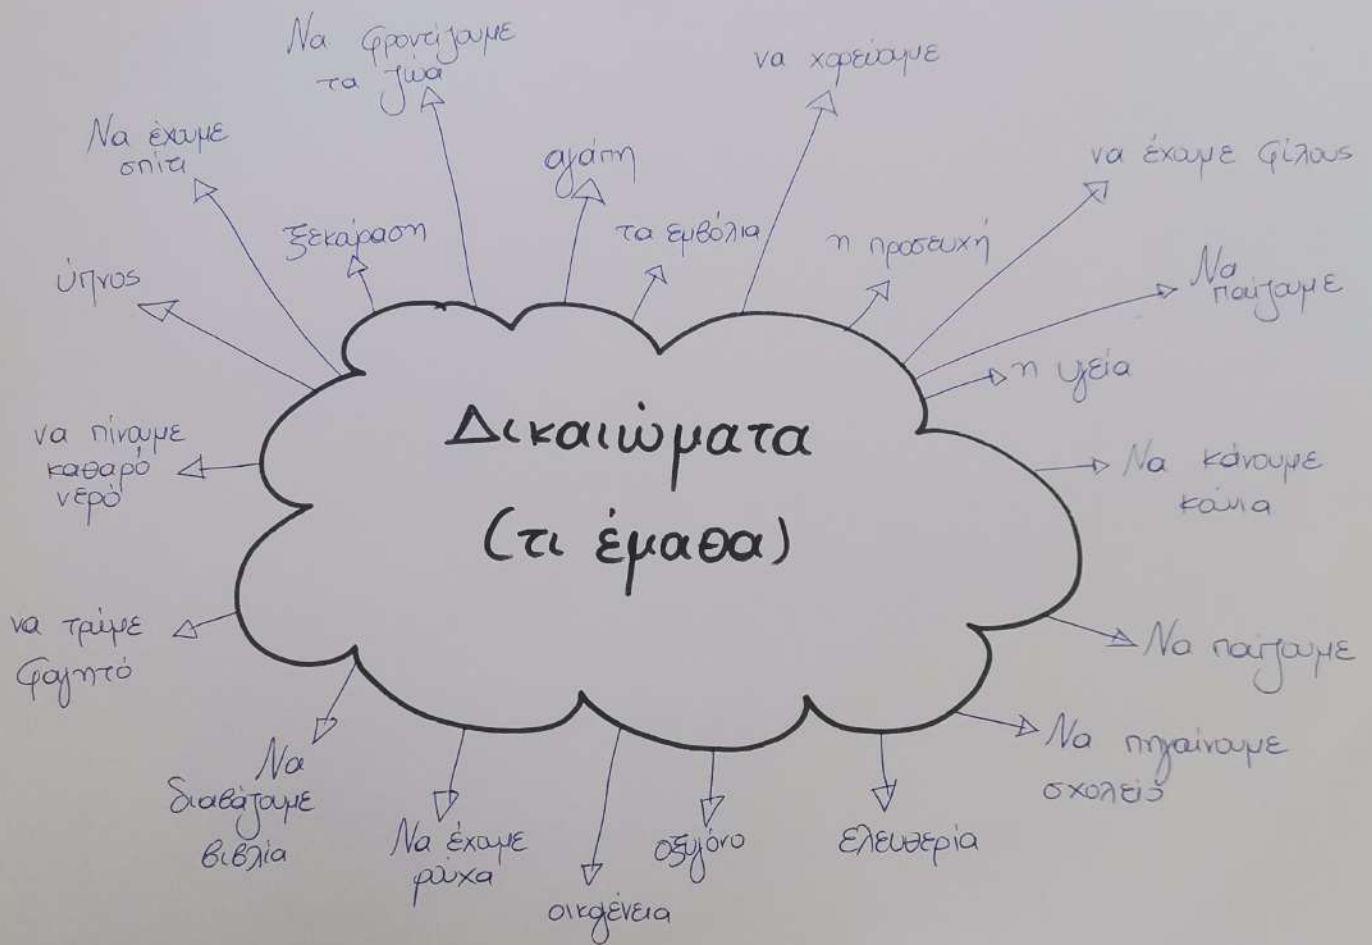 Να φροντίζουμε
τα ζώα
να χορεύουμε
Να έχουμε
σπίτι
αγάπη
να έχουμε φίλους
ξεκούραση
τα εμβόλια
η προσευχή
ύπνος
Να
παίζουμε
η υγεία
Δικαιώματα
(τι έμαθα)
να πίνουμε
καθαρό
νερό
Να κάνουμε
να τρώμε
φαγητό
Να παίζουμε
Να πηγαίνουμε
σχολείο
Να
διαβάζουμε
βιβλία
Να έχουμε
ρούχα
οικογένεια
οξυγόνο
ελευθερία